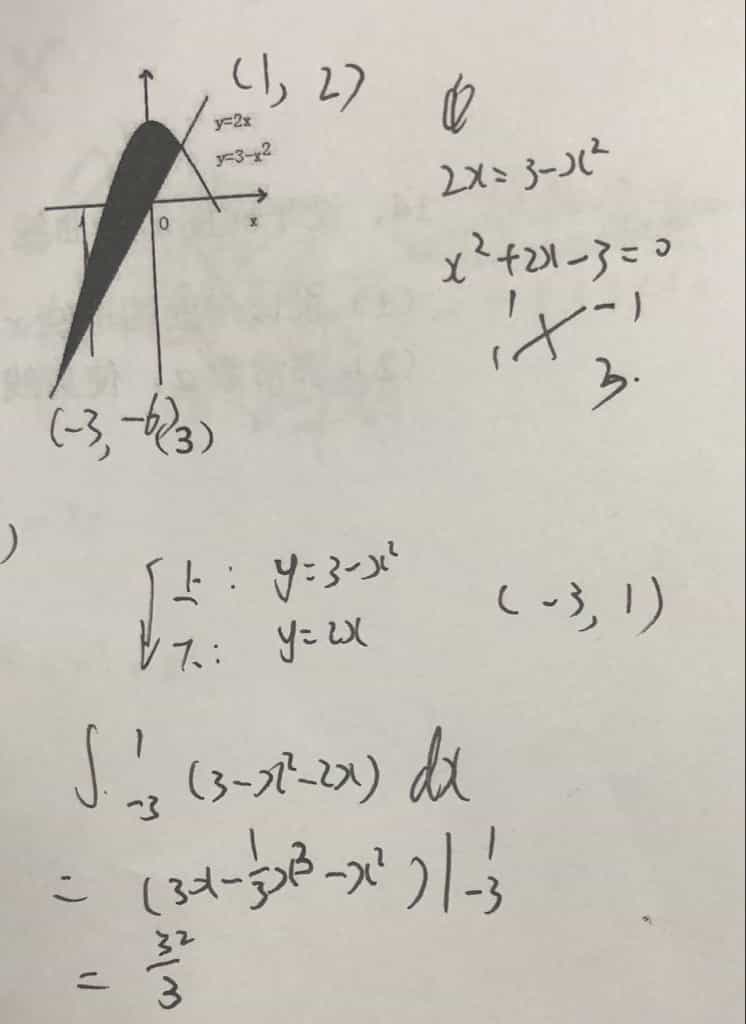 (1, 2)
y=2x
y=3-x²
0
x
(-3, -6)
(3)
2x=3-x²
x²+2x-3=0
1 -1
1 3.
)
上: y=3-x²
下: y=2x
(-3, 1)
∫₋₃¹ (3-x²-2x) dx
= (3x-⅓x³-x²)|₋₃¹
= 32/3